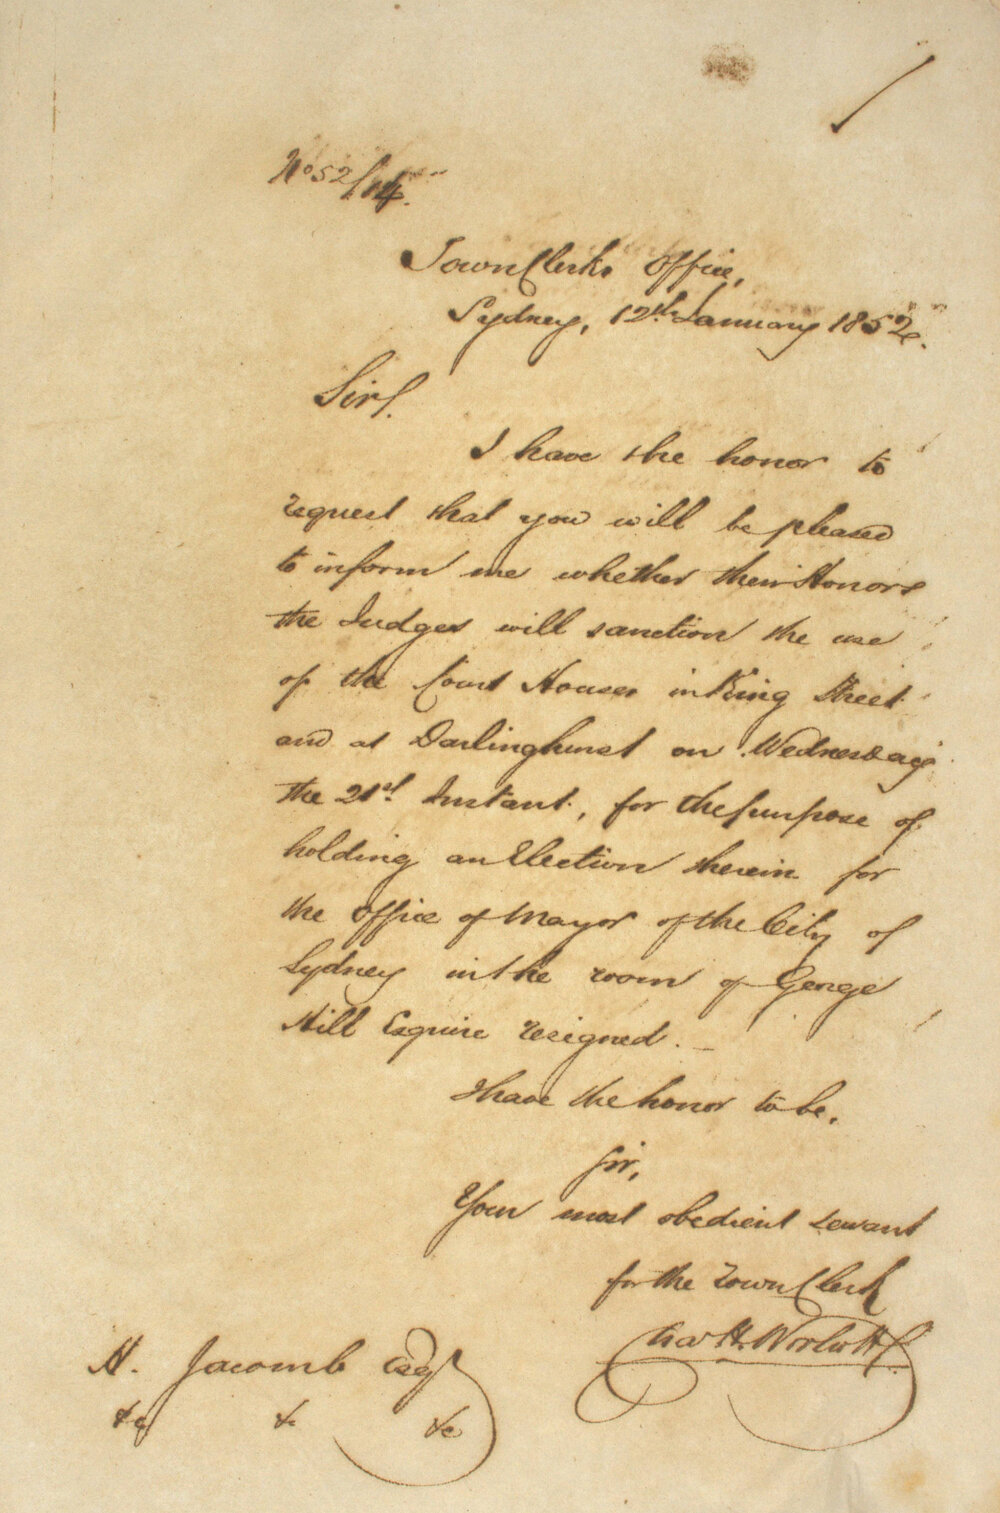 No 52/14.
Town Clerks Office,
Sydney, 12th January 1852.
Sir,
I have the honor to
request that you will be pleased
to inform me whether their Honors
the Judges will sanction the use
of the Court Houses in King Street
and at Darlinghurst on Wednesday
the 21st Instant, for the purpose of
holding an Election therein for
the Office of Mayor of the City of
Sydney in the room of George
Hill Esquire resigned. —
I have the honor to be,
Sir,
Your most obedient servant
for the Town Clerk
Chas H. Woolcott
H. Jacomb Esqr
&c & &c